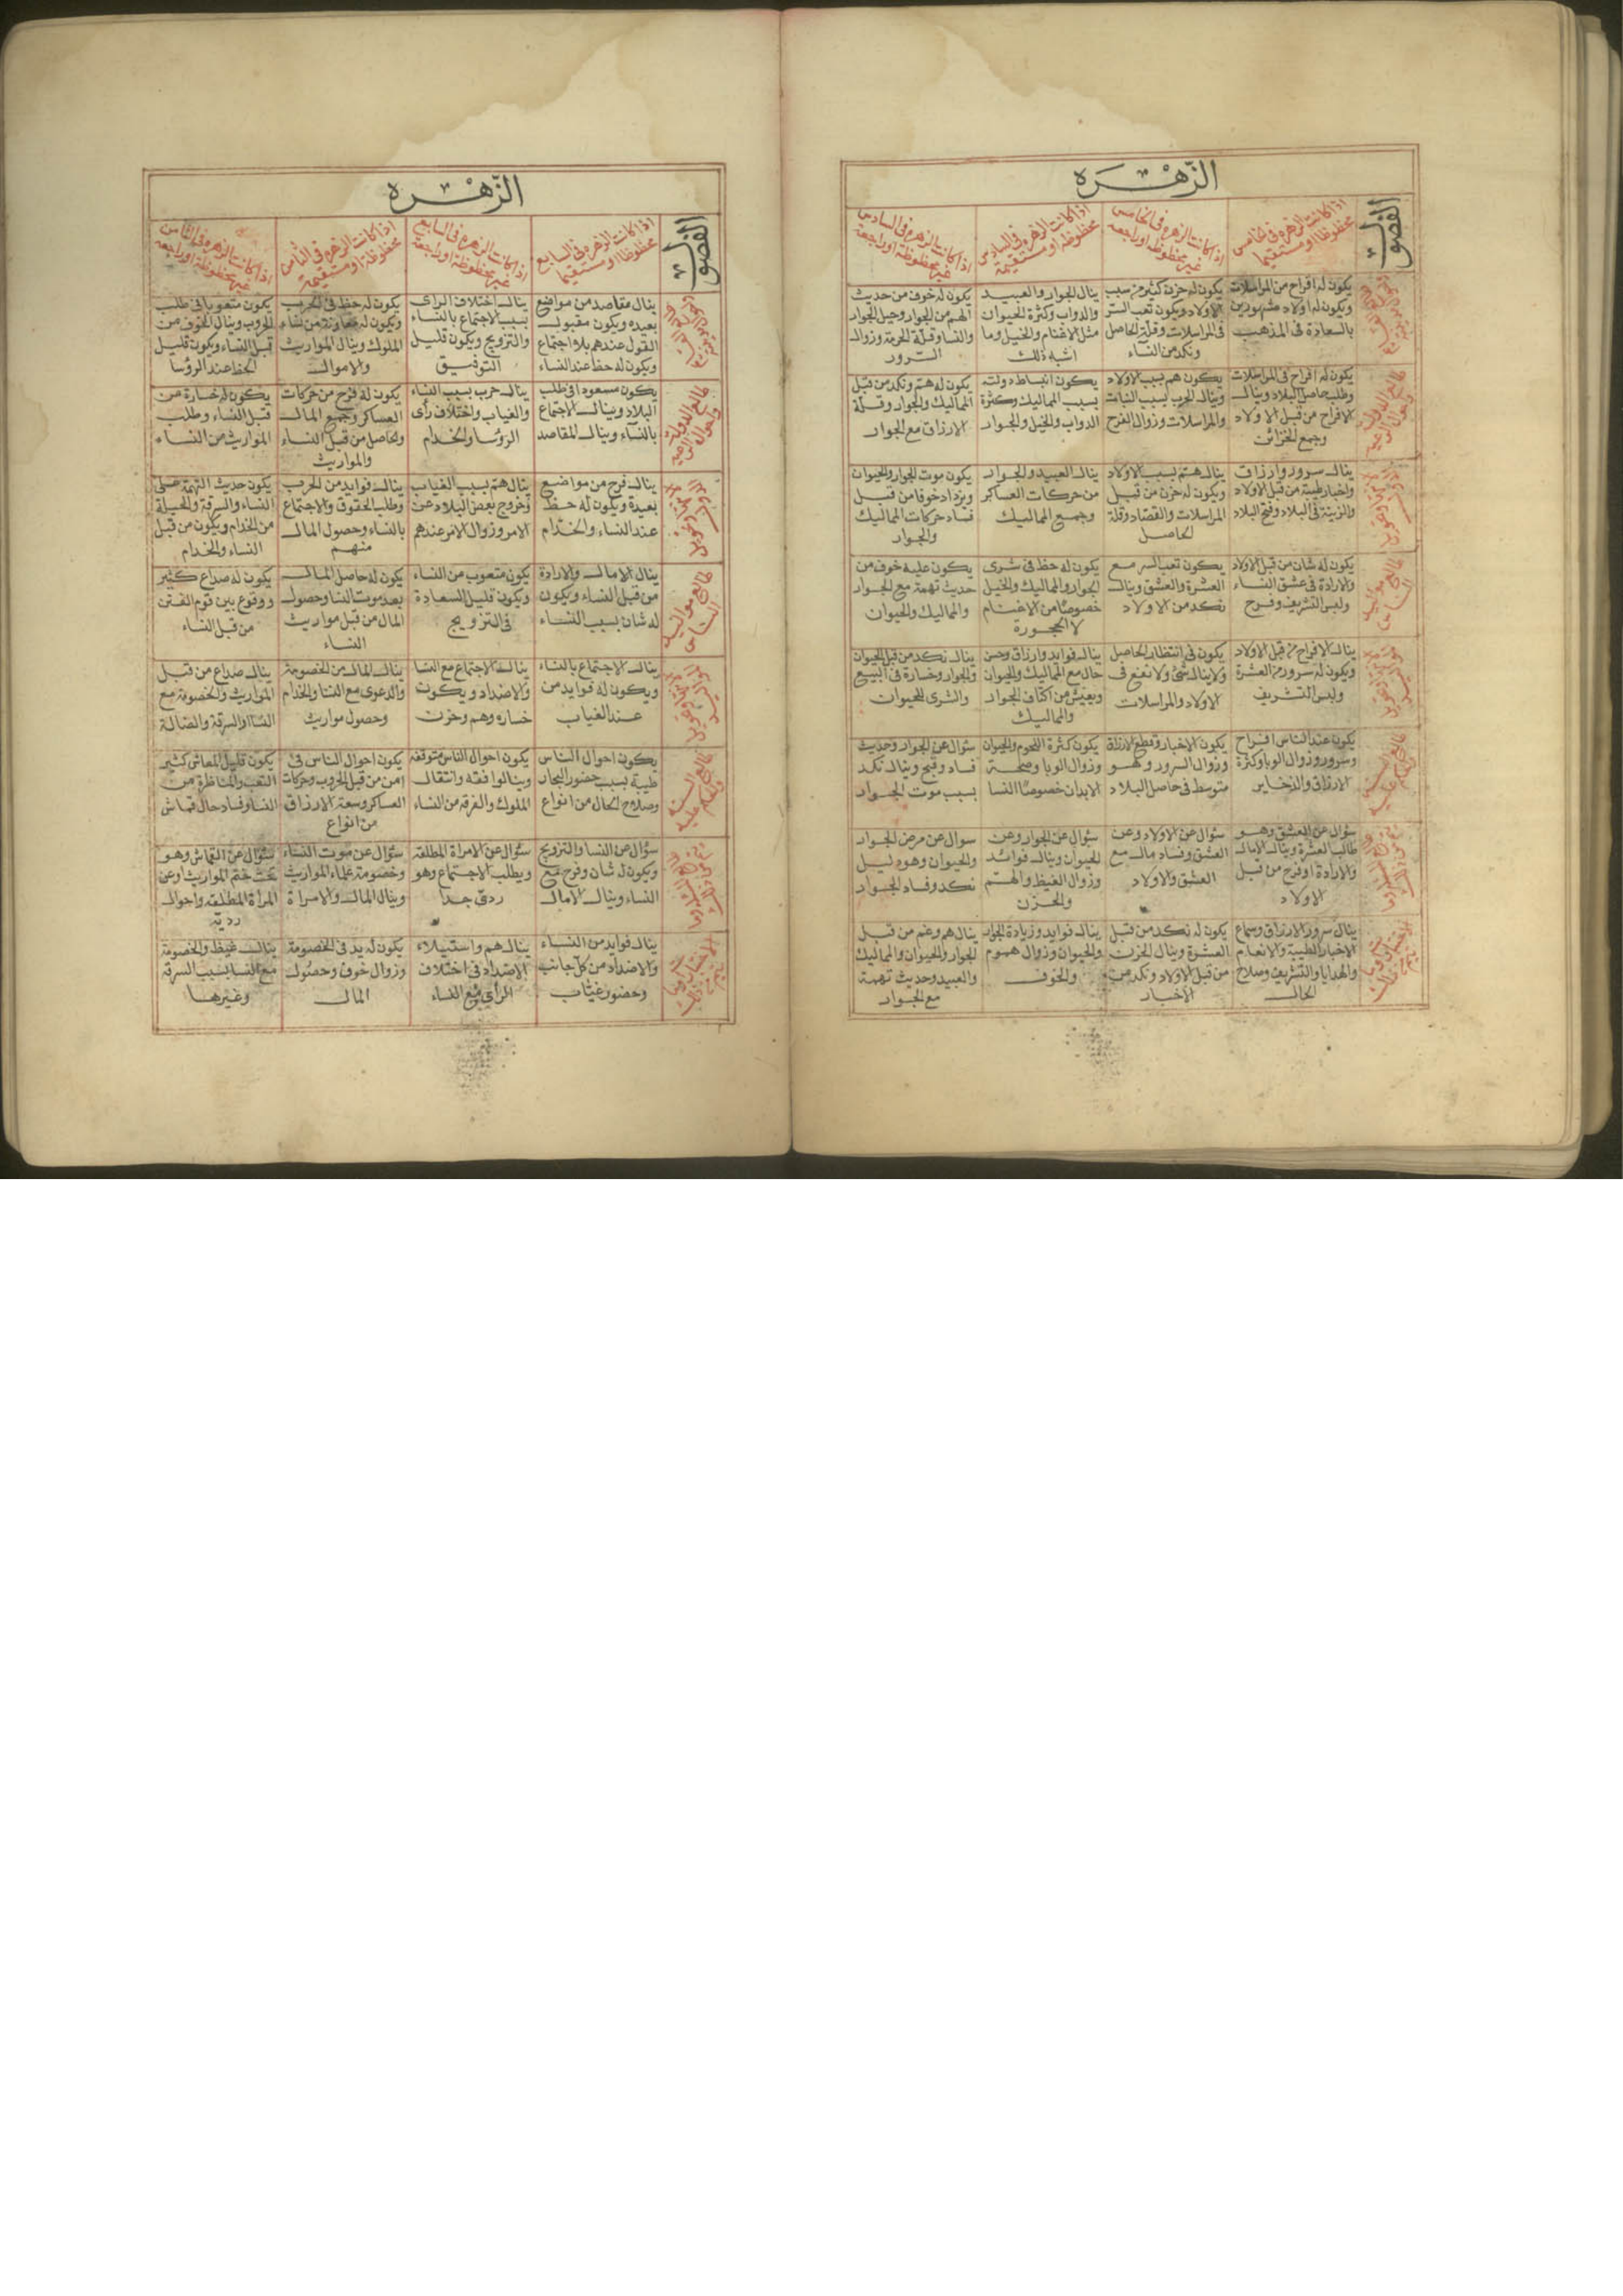 الزهره
الفصول
اذا كانت الزهره فى خامس
محظوظا او مستقيما
اذا كانت الزهره فى الخامس
غير محظوظه او راجعة
اذا كانت الزهره فى السادس
محظوظه او مستقيمة
اذا كانت الزهره فى السادس
غير محظوظة او راجعة
يكون له افراح من المراسلات
ويكون له اولاد مشهودين
بالسعادة فى المذهب
يكون له حزن كثير من سبب
الاولاد ويكون تعب السر
فى المراسلات وقلة الحاصل
ونكد من النساء
ينال الجوار والعبيد
والدواب وكثرة الحيوان
مثل الاغنام والخيل وما
اشبه ذلك
يكون له خوف من حديث
الهم من الجوار وحيل الجوار
والنساء وقلة الحرمة وزوال
السرور
يكون له افراح فى المراسلات
وطلب حاصل البلاد وينال
الافراح من قبل الاولاد
وجمع الخزائن
يكون هم بسبب الاولاد
وينال الحرب بسبب البنات
والمراسلات وزوال الفرح
يكون انبساط دولته
بسبب المماليك وكثرة
الدواب والخيل والجوار
يكون له هم ونكد من قبل
المماليك والجوار وقلة
الارزاق مع الجوار
ينال سرور وارزاق
واخبار طيبة من قبل الاولاد
والزينة فى البلاد وفتح البلاد
ينال هم بسبب الاولاد
ويكون له حزن من قبل
المراسلات والقصاد وقلة
الحاصل
ينال العبيد والجوار
من حركات العساكر
وجميع المماليك
يكون موت الجوار والحيوان
ويزداد خوفا من قبل
فساد حركات المماليك
والجوار
يكون له شان من قبل الاولاد
والارادة فى عشق النساء
ولبس التشريف وفرح
يكون تعب السر مع
العشرة والعشق وينال
نكد من الاولاد
يكون له حظ فى شرى
الجوار والمماليك والخيل
خصوصا من الاغنام
لا الحجورة
يكون عليه خوف من
حديث تهمة مع الجوار
والمماليك والحيوان
ينال الافراح من قبل الاولاد
ويكون له سرور من العشرة
ولبس التشريف
يكون فى انتظار الحاصل
ولا ينال شئ ولا نفع فى
الاولاد والمراسلات
ينال فوايد وارزاق وحسن
حال مع المماليك والحيوان
ويعيش من اكتاف الجوار
والمماليك
ينال نكد من قبل الحيوان
والجوار وخسارة فى البيع
والشرى للحيوان
يكون عند الناس افراح
وسرور وزوال الوبا وكثرة
الارزاق والذخاير
يكون الاخبار وقطع الارزاق
وزوال السرور وهو
متوسط فى حاصل البلاد
يكون كثرة اللحوم والحيوان
وزوال الوبا وصحة
الابدان خصوصا النسا
سئوال عن الجوار وحديث
فساد وقبح وينال نكد
بسبب موت الجوار
سئوال عن العشق وهو
طالب العشرة وينال الامال
والارادة او فرح من قبل
الاولاد
سئوال عن الاولاد وعن
العشق وفساد مال مع
العشق والاولاد
سئوال عن الجوار وعن
الحيوان وينال فوائد
وزوال الغيظ والهم
والحزن
سوال عن مرض الجوار
والحيوان وهو دليل
نكد وفساد الجوار
ينال سرور الارزاق وسماع
الاخبار الطيبة والانعام
والهدايا والتشريف وصلاح
الحال
يكون له نكد من قبل
العشرة وينال الحزن
من قبل الاولاد ونكد من
الاخبار
ينال فوايد وزيادة الجوار
والحيوان وزوال هموم
والخوف
ينال هم وغم من قبل
الجوار والحيوان والمماليك
والعبيد وحديث تهمة
مع الجوار
الزهره
الفصول
اذا كانت الزهره فى السابع
محظوظا او مستقيما
اذا كانت الزهره فى السابع
غير محظوظة او راجعة
اذا كانت الزهره فى الثامن
محظوظة او مستقيمة
اذا كانت الزهره فى الثامن
غير محظوظة او راجعة
ينال مقاصد من مواضع
بعيده ويكون مقبول
القول عندهم بلا اجتماع
ويكون له حظ عند النساء
ينال اختلاف الراى
بسبب الاجتماع بالنساء
والتزويج ويكون قليل
التوفيق
يكون له حظ فى الحرب
ويكون له معاونة من نساء
الملوك وينال المواريث
والاموال
يكون متعوبا فى طلب
الحروب وينال الخوف من
قبل النساء ويكون قليل
الحظ عند الرؤسا
يكون مسعودا فى طلب
البلاد وينال الاجتماع
بالنساء وينال المقاصد
ينال حرب بسبب النساء
والغياب واختلاف رأى
الرؤسا والخدام
يكون له فرح من حركات
العساكر وجميع المال
والحاصل من قبل النساء
والمواريث
يكون له خسارة من
قبل النساء وطلب
المواريث من النساء
ينال فرح من مواضع
بعيدة ويكون له حظ
عند النساء والخدام
ينال هم بسبب الغياب
وخروج بعض البلاد عن
الامر وزوال الامر عندهم
ينال فوايد من الحرب
وطلب الحقوق والاجتماع
بالنساء وحصول المال
منهم
يكون حديث التهمة على
النساء والسرقة والحيلة
من الخدام ويكون من قبل
النساء والخدام
ينال الامال والارادة
من قبل النساء ويكون
له شان بسبب النساء
يكون متعوب من النساء
ويكون قليل السعادة
فى التزويج
يكون له حاصل المال
بعد موت النسا وحصول
المال من قبل مواريث
النساء
يكون له صداع كثير
ووقوع بين قوم الفتن
من قبل النساء
ينال الاجتماع بالنساء
ويكون له فوايد من
عند الغياب
ينال الاجتماع مع النسا
والاضداد ويكون
خساره وهم وحزن
ينال المال من الخصومة
والدعوى مع النسا والخدام
وحصول مواريث
ينال صداع من قبل
المواريث والخصومة مع
النسا والسرقة والضالة
يكون احوال الناس
طيبة بسبب حضور التجار
وصلاح الحال من انواع
يكون احوال الناس متوقفة
وينالوا فقه وانتقال
الملوك والفرقة من النساء
يكون احوال الناس فى
امن من قبل الحروب وحركات
العساكر وسعة الارزاق
من انواع
يكون قليل المعاش كثير
التعب والمناظرة من
النسا وفساد حال قماش
سئوال عن النسا والتزويج
ويكون له شان وفرح مع
النساء وينال الامال
سئوال عن الامراة المطلقه
ويطلب الاجتماع وهو
ردئ جدا
سئوال عن موت النساء
وخصومة علماء المواريث
وينال المال والامراة
سئوال عن القماش وهو
تحت ختم المواريث او عن
المرأة المطلقه واحوال
رديّة
ينال فوايد من النساء
والاضداد من كل جانب
وحضور غياب
ينال هم واستيلاء
الاضداد فى اختلاف
الرأى مع النساء
يكون له يد فى الخصومة
وزوال خوف وحصول
المال
ينال غيظ والخصومة
مع النسا بسبب السرقة
وغيرها